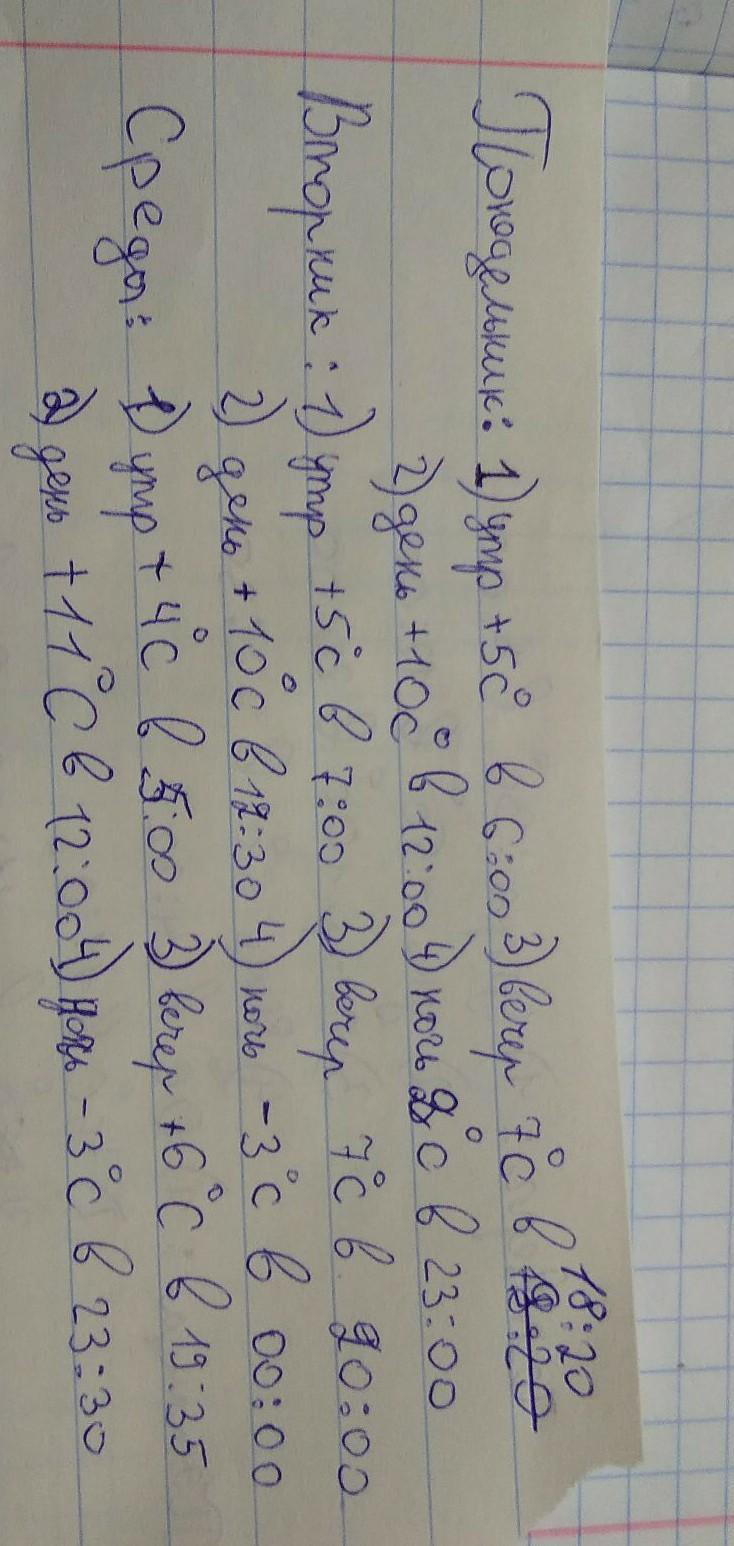 Понедельник: 1) утр +5°C в 6:00 3) вечер 7°C в 18:20
2) день +10°C в 12:00 4) ночь 2°C в 23:00
Вторник: 1) утр +5°C в 7:00 3) вечер 7°C в 20:00
2) день +10°C в 12:30 4) ночь -3°C в 00:00
Среда: 1) утр +4°C в 5:00 3) вечер +6°C в 19:35
2) день +11°C в 12:00 4) ночь -3°C в 23:30